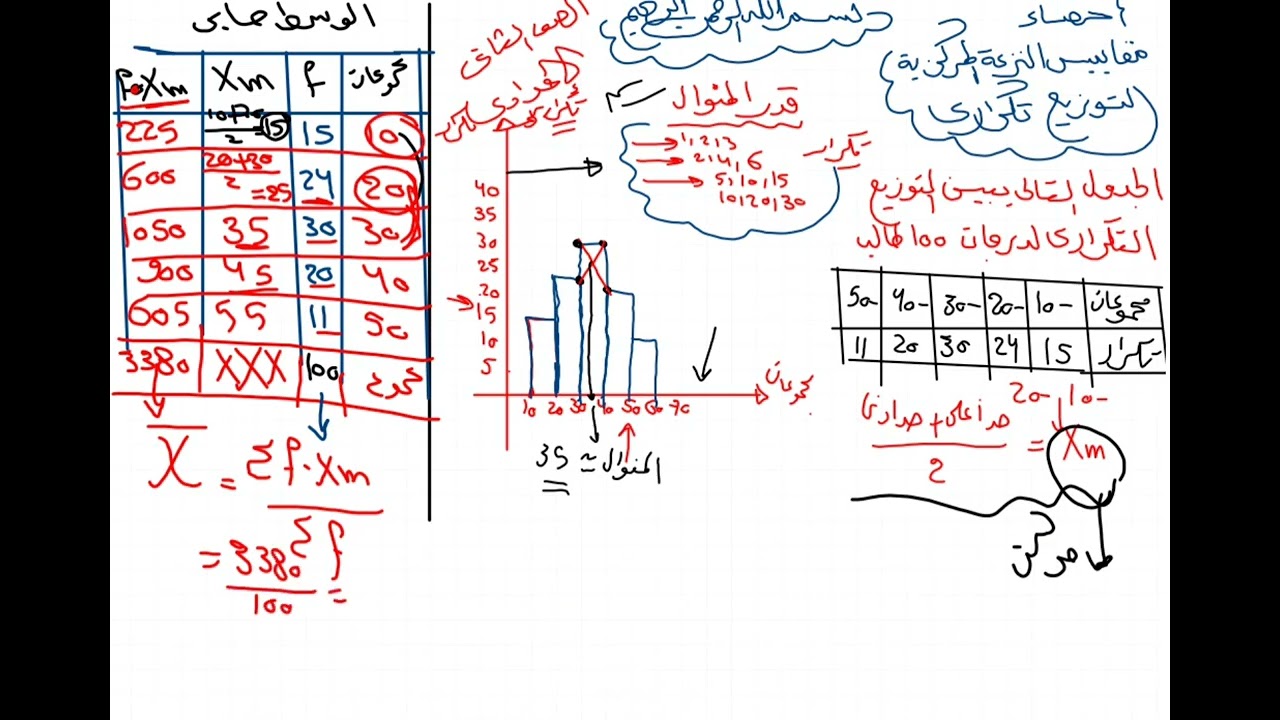 احصاء
مقاييس النزعة المركزية
لتوزيع تكرارى
بسم الله الرحمن الرحيم
الصف الثانى
اعدادى
قدر المنوال
تكرار
1,2,3
2,4,6
5,10,15
10,20,30
الجدول التالى يبين التوزيع
التكرارى لدرجات 100 طالب
مجموعات 10- 20- 30- 40- 50
تكرار 15 24 30 20 11
10- 20-
Xm = حد أعلى + حد أدنى / 2
مركز
تكرار
40
35
30
25
20
15
10
5
10 20 30 40 50 60 70
مجموعات
المنوال ≃ 35
الوسط حسابى
مجموعات f Xm f•Xm
10 15 10+20/2 = 15 225
20 24 20+30/2 = 25 600
30 30 35 1050
40 20 45 900
50 11 55 605
مجموع 100 XXX 3380
X = Σf·Xm
Σf
= 3380 =
100